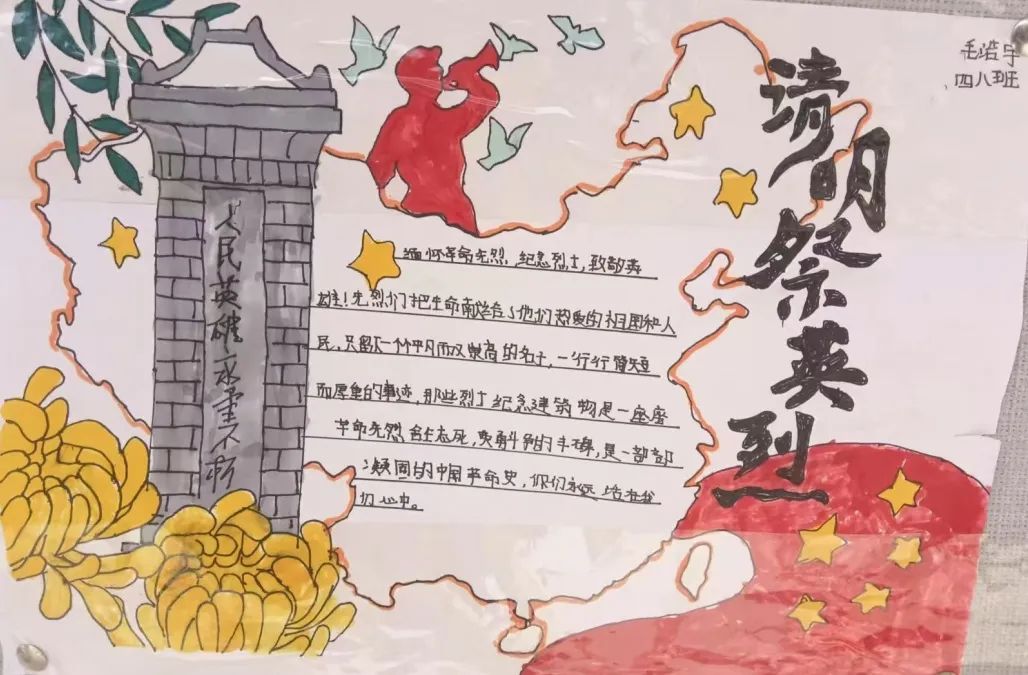 毛浩宇
四八班
清明祭英烈
人民英雄永垂不朽
缅怀革命先烈,纪念烈士,致敬英
雄!先烈们把生命献给了他们热爱的祖国和人
民,只留下一个个平凡而又崇高的名字,一行行简短
而厚重的事迹,那些烈士纪念建筑物是一座座
革命先烈舍生忘死,英勇斗争的丰碑,是一部部
凝固的中国革命史,你们永远活在我
们心中。